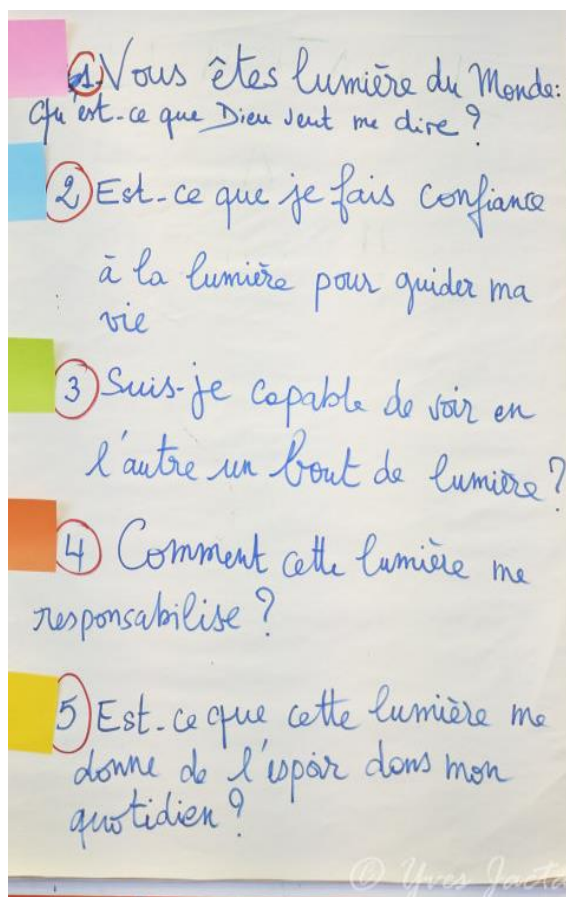 1 Vous êtes lumière du Monde:
Qu'est-ce que Dieu veut me dire ?
2 Est-ce que je fais confiance
à la lumière pour guider ma
vie
3 Suis-je capable de voir en
l'autre un bout de lumière ?
4 Comment cette lumière me
responsabilise ?
5 Est-ce que cette lumière me
donne de l'espoir dans mon
quotidien ?
© Yves